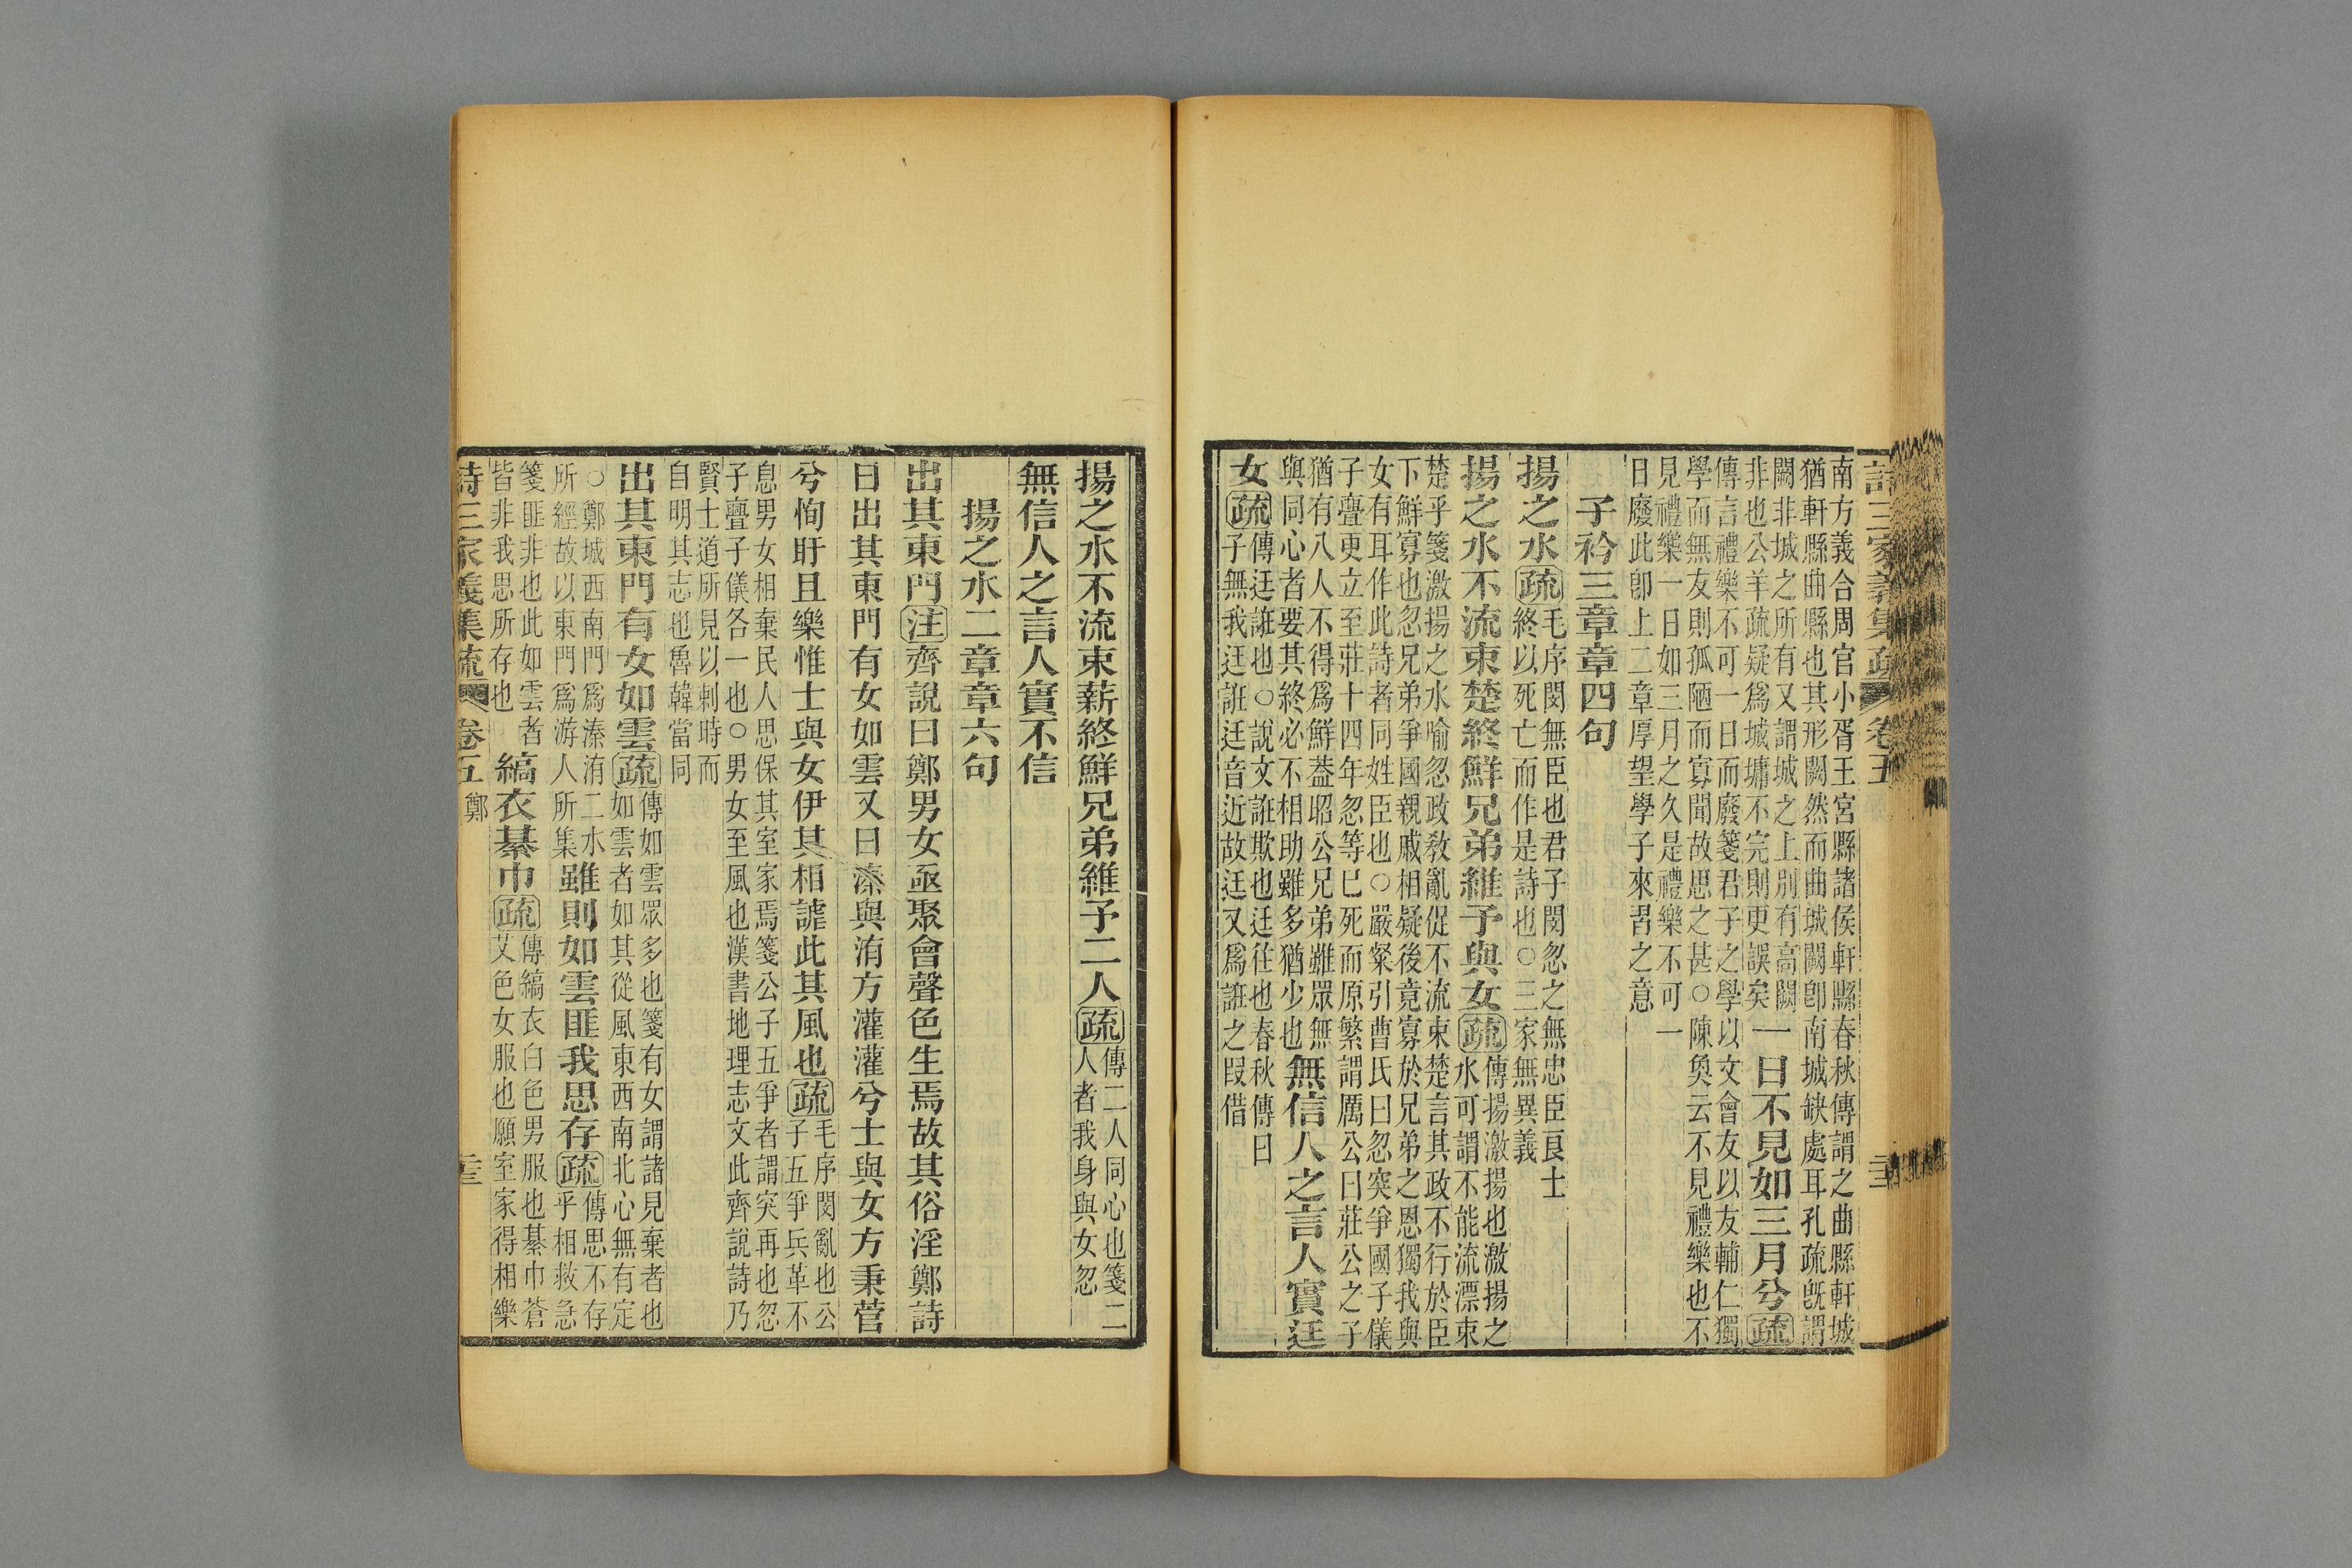 詩三家義集疏 卷五
南方義合周官小胥王宮縣諸侯軒縣春秋傳謂之曲縣軒城
猶軒縣曲縣也其形闕然而曲城闕卽南城缺處耳孔疏旣謂
闕非城之所有又謂城之上別有高闕
非也公羊疏疑爲城墉不完則更誤矣
一日不見如三月兮疏
傳言禮樂不可一日而廢箋君子之學以文會友以友輔仁獨
學而無友則孤陋而寡聞故思之甚○陳奐云不見禮樂也不
見禮樂一日如三月之久是禮樂不可一
日廢此卽上二章厚望學子來習之意
子衿三章章四句
揚之水疏
毛序閔無臣也君子閔忽之無忠臣良士
終以死亡而作是詩也○三家無異義
揚之水不流束楚終鮮兄弟維予與女疏
傳揚激揚也激揚之
水可謂不能流漂束
楚乎箋激揚之水喻忽政敎亂促不流束楚言其政不行於臣
下鮮寡也忽兄弟爭國親戚相疑後竟寡於兄弟之恩獨我與
女有耳作此詩者同姓臣也○嚴粲引曹氏曰忽突爭國子儀
子亹更立至莊十四年忽等已死而原繁謂厲公曰莊公之子
猶有八人不得爲鮮葢昭公兄弟雖眾無
與同心者要其終必不相助雖多猶少也
無信人之言人實迋
女疏
傳迋誑也○說文誑欺也迋往也春秋傳曰
子無我迋誑迋音近故迋又爲誑之叚借
揚之水不流束薪終鮮兄弟維予二人疏
傳二人同心也箋二
人者我身與女忽
無信人之言人實不信
揚之水二章章六句
出其東門注齊說曰鄭男女亟聚會聲色生焉故其俗淫鄭詩
曰出其東門有女如雲又曰溱與洧方灌灌兮士與女方秉菅
兮恂盱且樂惟士與女伊其相謔此其風也疏
毛序閔亂也公
子五爭兵革不
息男女相棄民人思保其室家焉箋公子五爭者謂突再也忽
子亹子儀各一也○男女至風也漢書地理志文此齊說詩乃
賢士道所見以刺時而
自明其志也魯韓當同
出其東門有女如雲疏
傳如雲眾多也箋有女謂諸見棄者也
如雲者如其從風東西南北心無有定
○鄭城西南門爲溱洧二水
所經故以東門爲游人所集
雖則如雲匪我思存疏
傳思不存
乎相救急
箋匪非也此如雲者
皆非我思所存也
縞衣綦巾疏
傳縞衣白色男服也綦巾蒼
艾色女服也願室家得相樂
詩三家義集疏 卷五 鄭